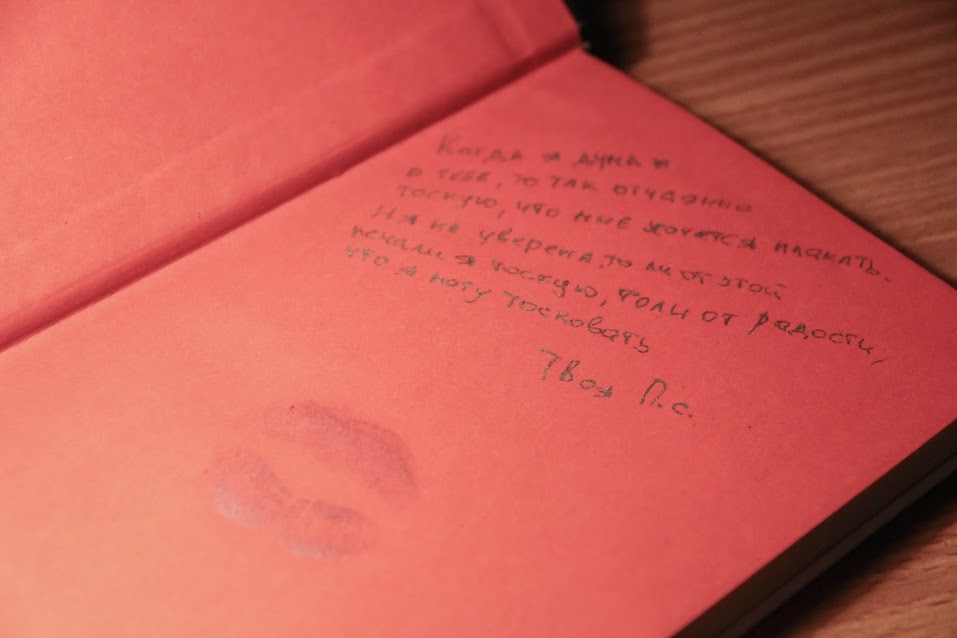 Когда я думаю
о тебе, то так отчаянно
тоскую, что мне хочется плакать.
И я не уверена, то ли от этой
печали я тоскую, толи от радости,
что я могу тосковать
Твоя П.с.